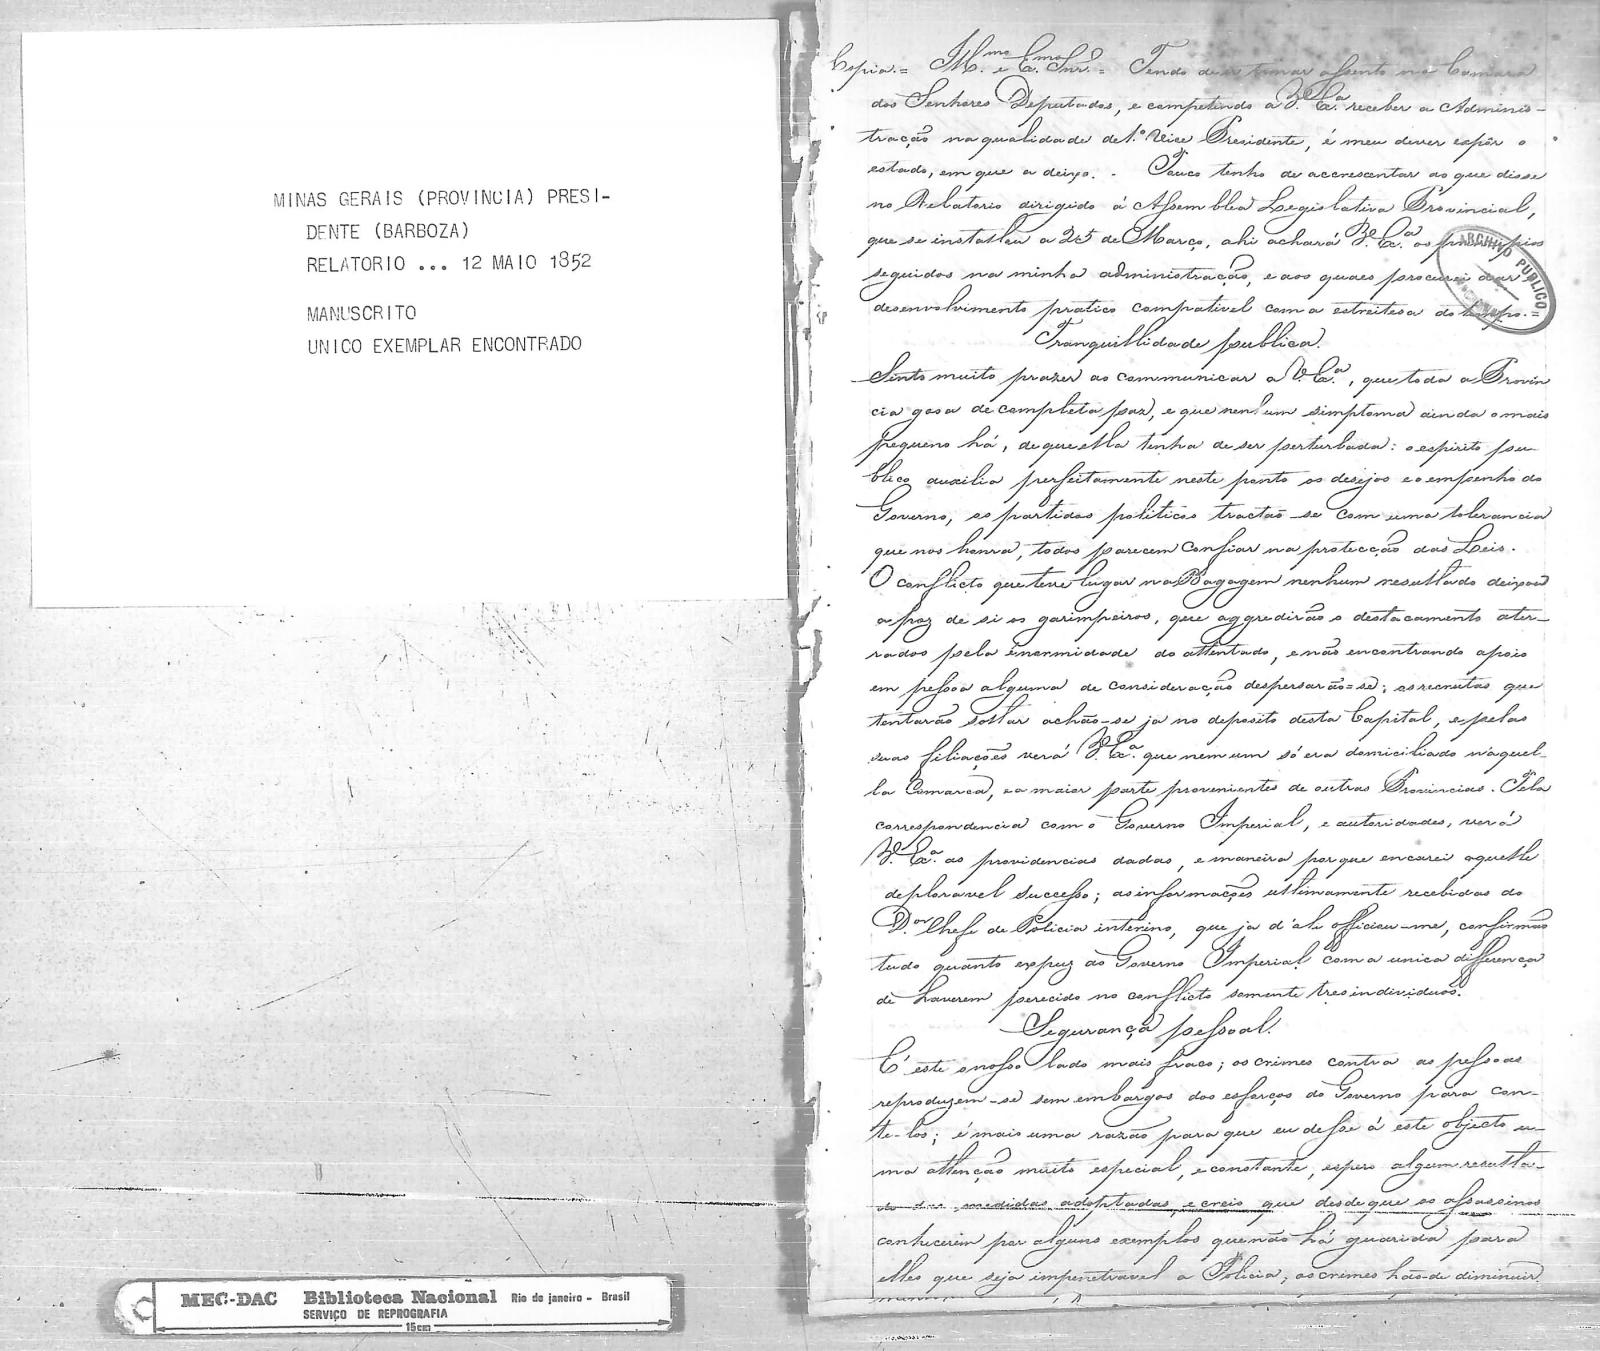 MINAS GERAIS (PROVINCIA) PRESI-
DENTE (BARBOZA)
RELATORIO ... 12 MAIO 1852
MANUSCRITO
UNICO EXEMPLAR ENCONTRADO
MEC-DAC Biblioteca Nacional Rio de janeiro - Brasil
SERVIÇO DE REPROGRAFIA
15cm
Copia. = Ill.mo e Ex.mo Snr. = Tendo de ir tomar assento na Camara
dos Senhores Deputados, e competindo a V. Ex.a receber a Adminis-
tração na qualidade de 1.º Vice Presidente, é meu dever expôr o
estado, em que a deixo. - Pouco tenho de accrescentar ao que disse
no Relatorio dirigido á Assemblea Legislativa Provincial,
que se installou a 25 de Março, ahi achará V. Ex.a os principios
seguidos na minha administração, e aos quaes procurei dar
desenvolvimento pratico compativel com a estreitesa do tempo. =
ARCHIVO PUBLICO
Tranquillidade publica.
Sinto muito prazer ao communicar a V. Ex.a, que toda a Provin
cia gosa de completa paz, e que nenhum simptoma ainda o mais
pequeno há, de que ella tenha de ser perturbada: o espirito pu-
blico auxilia perfeitamente neste ponto os desejos e o empenho do
Governo, os partidos politicos tractão-se com uma tolerancia
que nos honra, todos parecem confiar na protecção das Leis.
O conflicto que teve lugar na Bagagem nenhum resultado deixou
apoz de si os garimpeiros, que aggredirão o destacamento ater-
rados pela enormidade do attentado, e não encontrando apoio
em pessoa alguma de consideração despersarão=se; os recrutas que
tentarão soltar achão-se ja no deposito desta Capital, e pelas
suas filiações verá V. Ex.a que nem um só era domiciliado n'aquel-
la Comarca, e a maior parte provenientes de outras Provincias. Pela
correspondencia com o Governo Imperial, e autoridades, verá
V. Ex.a as providencias dadas, e maneira porque encarei aquelle
deploravel successo; as informações ultimamente recebidas do
D.or Chefe de Policia interino, que ja d'ali officiou-me, confirmão
tudo quanto expuz ao Governo Imperial com a unica differença
de haverem perecido no conflicto somente tres individuos.
Segurança pessoal.
É este o nosso lado mais fraco; os crimes contra as pessoas
reproduzem-se sem embargos dos esforços do Governo para con-
te-los; é mais uma razão para que eu desse á este objecto u-
ma attenção muito especial, e constante, espero algum resulta-
do das medidas adoptadas, e creio que desde que os assassinos
conhecerem por alguns exemplos que não há guarida para
elles que seja impenetravel a Policia, os crimes hão-de diminuir.